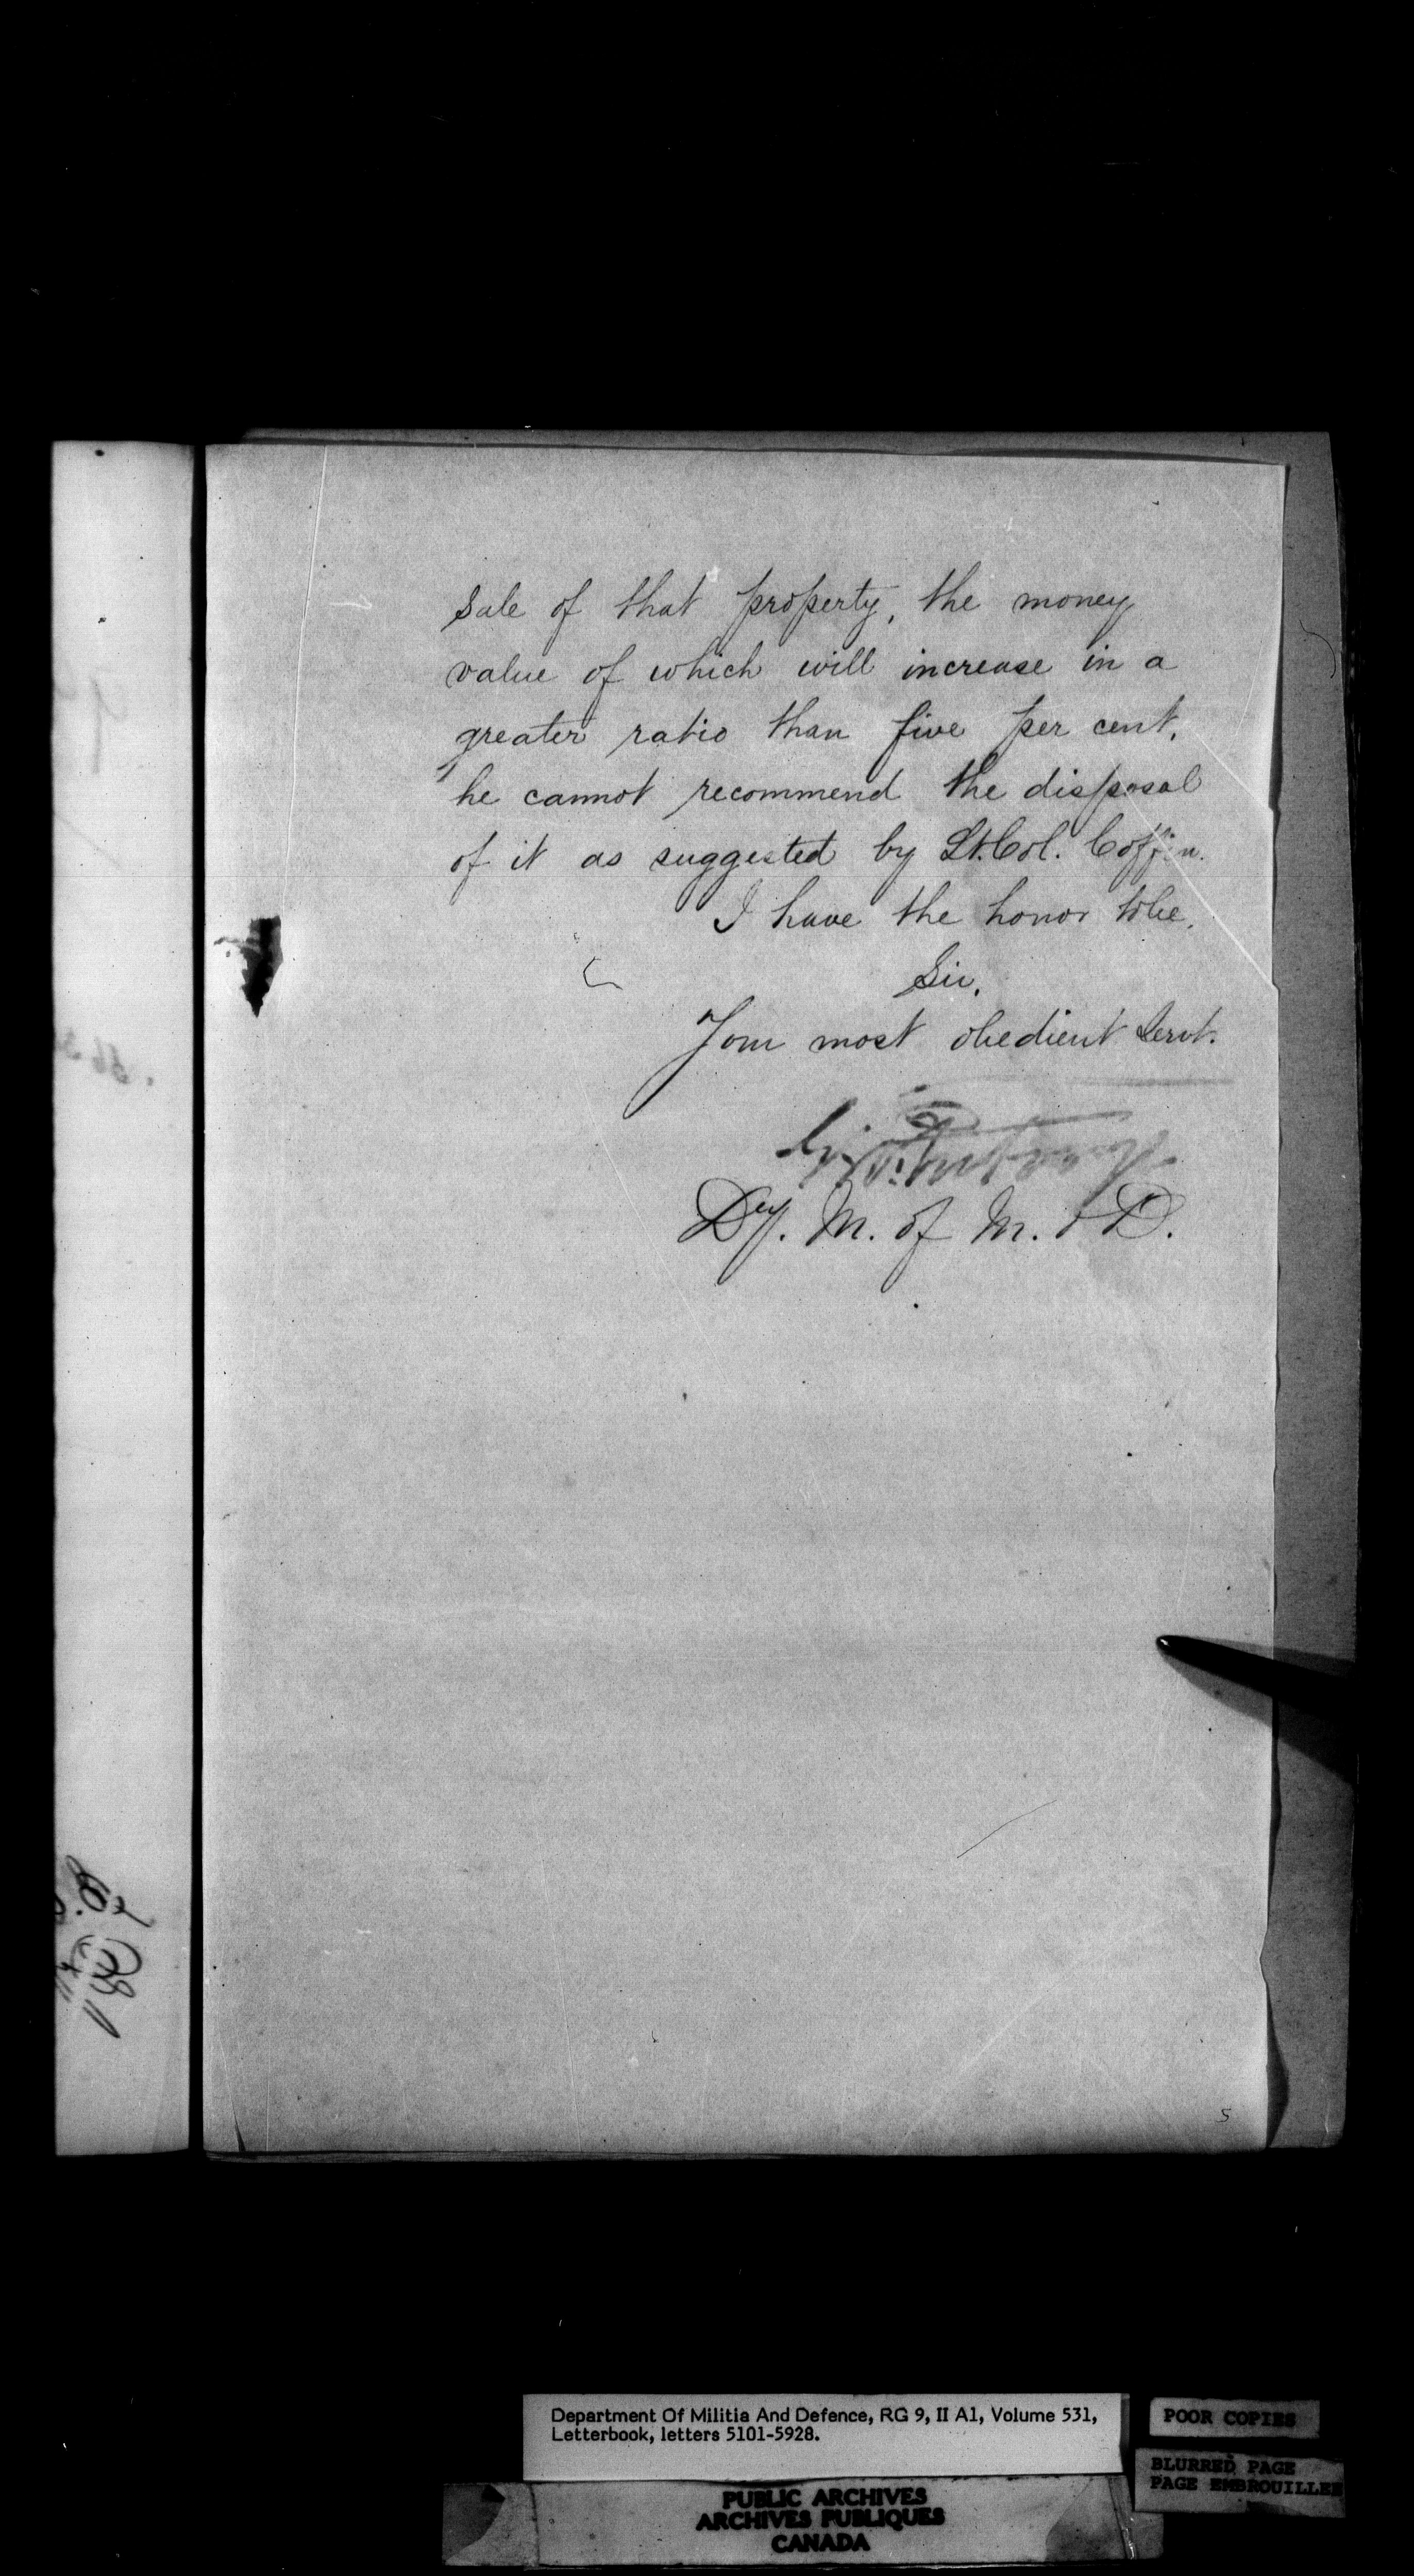 sale of that property, the money
value of which will increase in a
greater ratio than five per cent,
he cannot recommend the disposal
of it as suggested by Lt. Col. Coffin.
I have the honor to be,
Sir,
Your most obedient Servt.
Dy. M. of M. & D.
5
Department Of Militia And Defence, RG 9, II A1, Volume 531,
Letterbook, letters 5101-5928.
POOR COPIES
BLURRED PAGE
PAGE EMBROUILLEE
PUBLIC ARCHIVES
ARCHIVES PUBLIQUES
CANADA